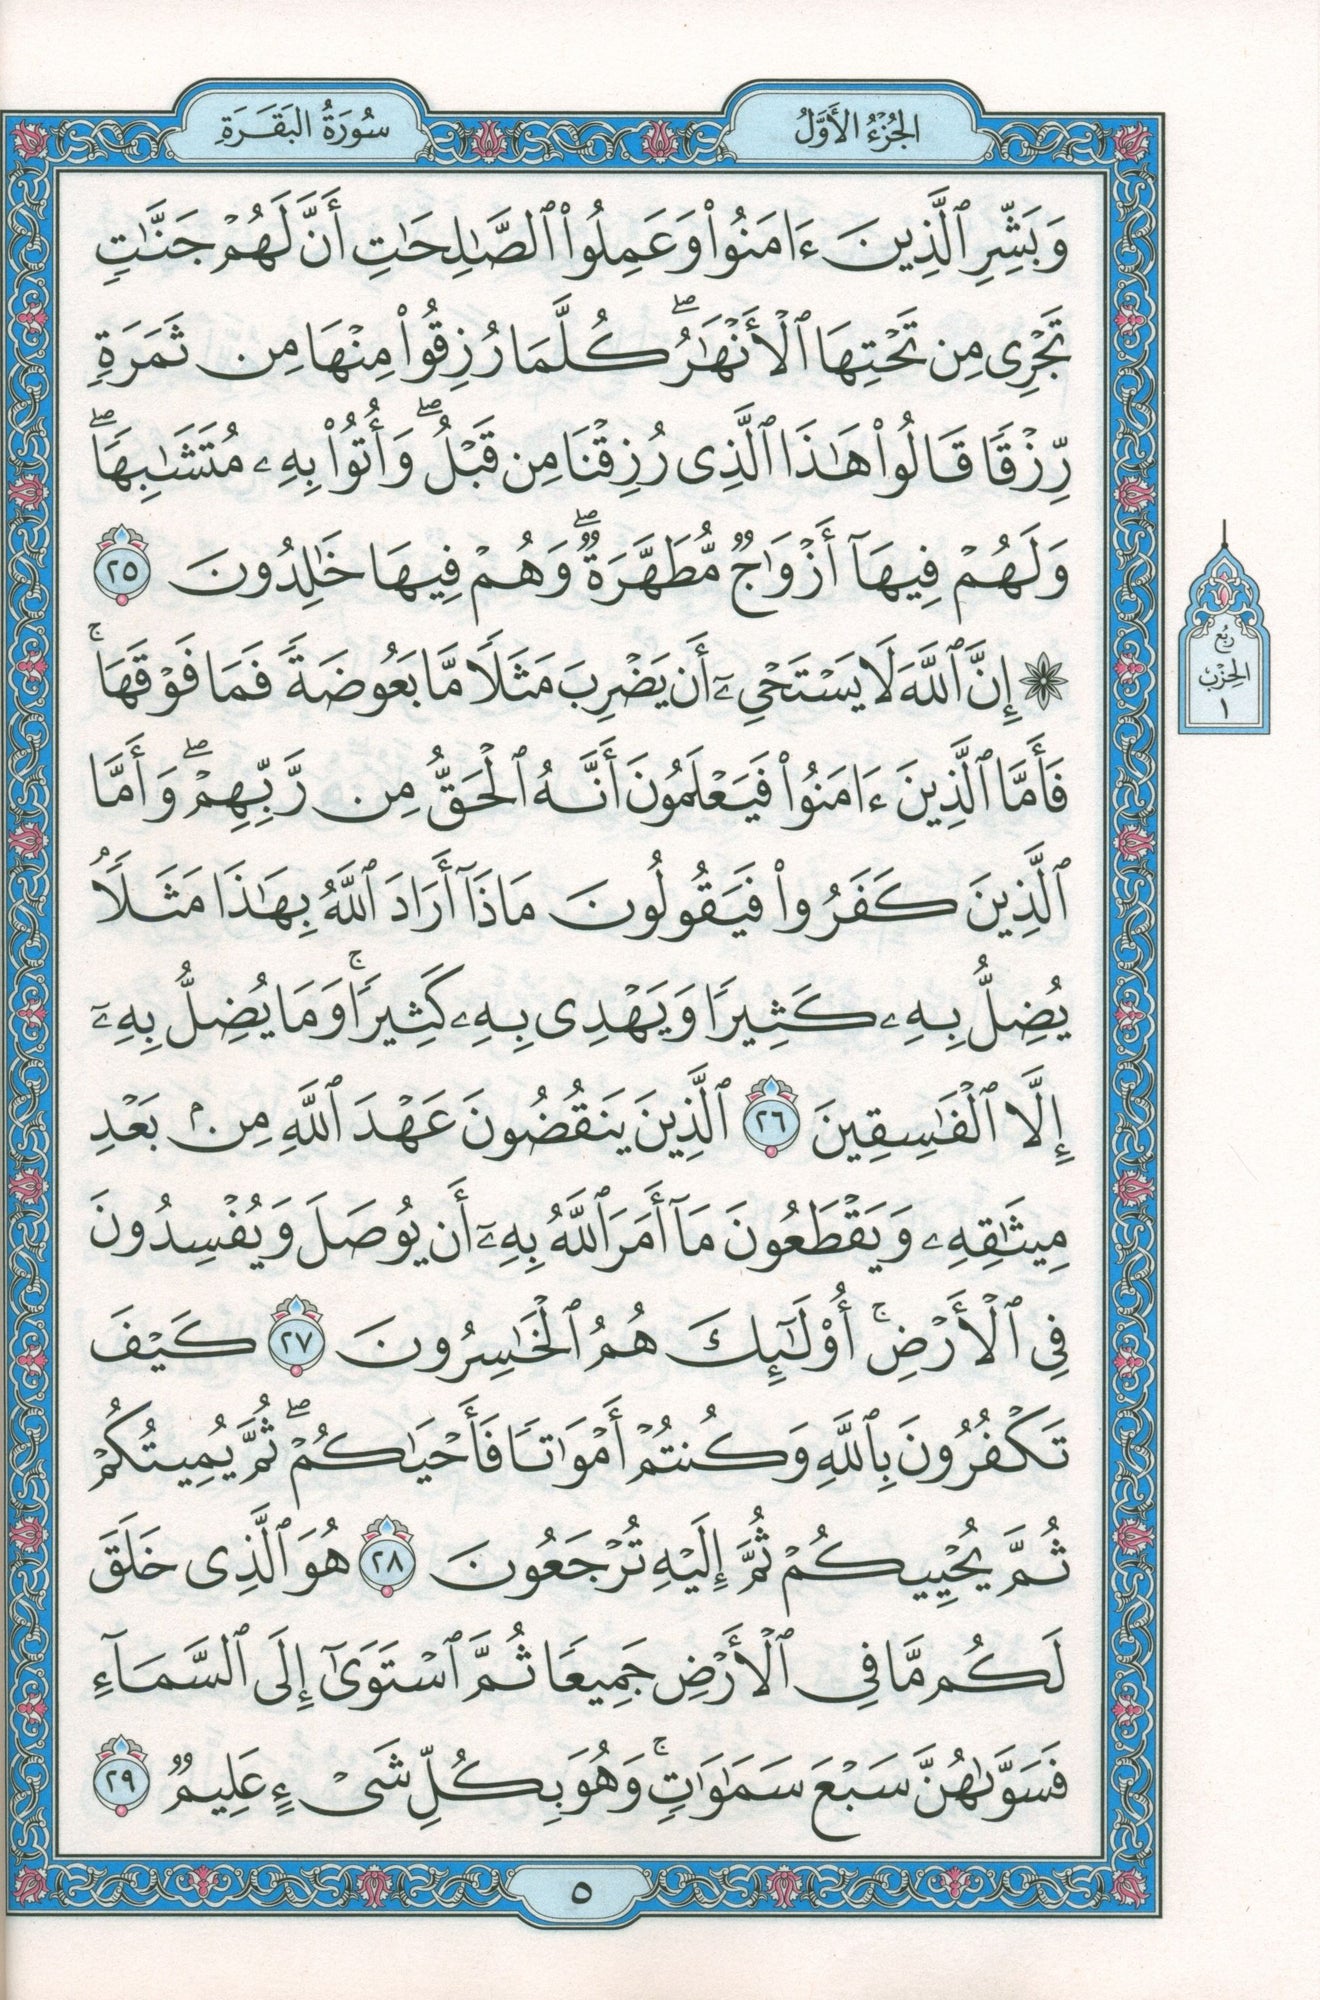 الجُزْءُ الأَوَّلُ
سُورَةُ البَقَرَةِ
وَبَشِّرِ ٱلَّذِينَ ءَامَنُواْ وَعَمِلُواْ ٱلصَّٰلِحَٰتِ أَنَّ لَهُمۡ جَنَّٰتٖ
تَجۡرِي مِن تَحۡتِهَا ٱلۡأَنۡهَٰرُۖ كُلَّمَا رُزِقُواْ مِنۡهَا مِن ثَمَرَةٖ
رِّزۡقٗا قَالُواْ هَٰذَا ٱلَّذِي رُزِقۡنَا مِن قَبۡلُۖ وَأُتُواْ بِهِۦ مُتَشَٰبِهٗاۖ
وَلَهُمۡ فِيهَآ أَزۡوَٰجٞ مُّطَهَّرَةٞۖ وَهُمۡ فِيهَا خَٰلِدُونَ ٢٥
۞ إِنَّ ٱللَّهَ لَا يَسۡتَحۡيِۦٓ أَن يَضۡرِبَ مَثَلٗا مَّا بَعُوضَةٗ فَمَا فَوۡقَهَاۚ
فَأَمَّا ٱلَّذِينَ ءَامَنُواْ فَيَعۡلَمُونَ أَنَّهُ ٱلۡحَقُّ مِن رَّبِّهِمۡۖ وَأَمَّا
ٱلَّذِينَ كَفَرُواْ فَيَقُولُونَ مَاذَآ أَرَادَ ٱللَّهُ بِهَٰذَا مَثَلٗاۘ
يُضِلُّ بِهِۦ كَثِيرٗا وَيَهۡدِي بِهِۦ كَثِيرٗاۚ وَمَا يُضِلُّ بِهِۦٓ
إِلَّا ٱلۡفَٰسِقِينَ ٢٦ ٱلَّذِينَ يَنقُضُونَ عَهۡدَ ٱللَّهِ مِنۢ بَعۡدِ
مِيثَٰقِهِۦ وَيَقۡطَعُونَ مَآ أَمَرَ ٱللَّهُ بِهِۦٓ أَن يُوصَلَ وَيُفۡسِدُونَ
فِي ٱلۡأَرۡضِۚ أُوْلَٰٓئِكَ هُمُ ٱلۡخَٰسِرُونَ ٢٧ كَيۡفَ
تَكۡفُرُونَ بِٱللَّهِ وَكُنتُمۡ أَمۡوَٰتٗا فَأَحۡيَٰكُمۡۖ ثُمَّ يُمِيتُكُمۡ
ثُمَّ يُحۡيِيكُمۡ ثُمَّ إِلَيۡهِ تُرۡجَعُونَ ٢٨ هُوَ ٱلَّذِي خَلَقَ
لَكُم مَّا فِي ٱلۡأَرۡضِ جَمِيعٗا ثُمَّ ٱسۡتَوَىٰٓ إِلَى ٱلسَّمَآءِ
فَسَوَّىٰهُنَّ سَبۡعَ سَمَٰوَٰتٖۚ وَهُوَ بِكُلِّ شَيۡءٍ عَلِيمٞ ٢٩
رُبُع
الحِزْب
١
٥